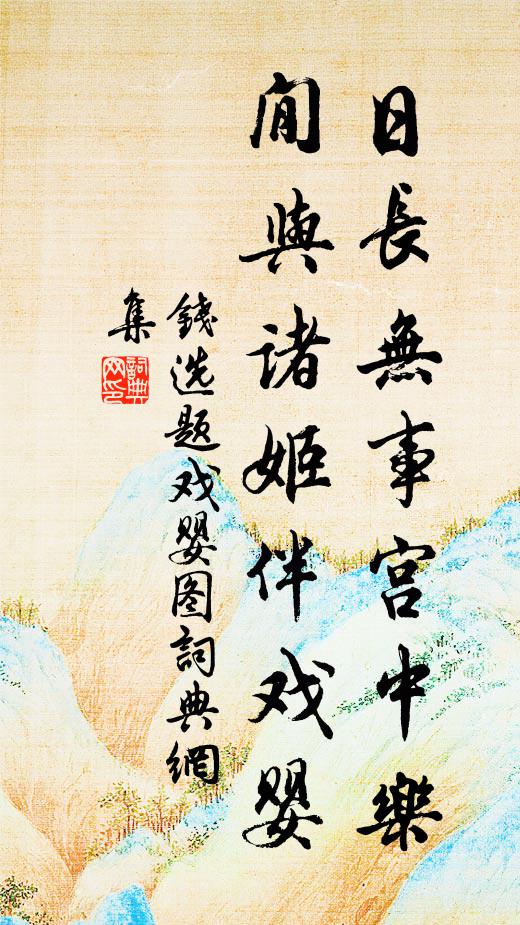 日長無事宮中樂
閒與诸姬伴戏嬰
錢选題戏嬰图詞典網
集
詞典
网印